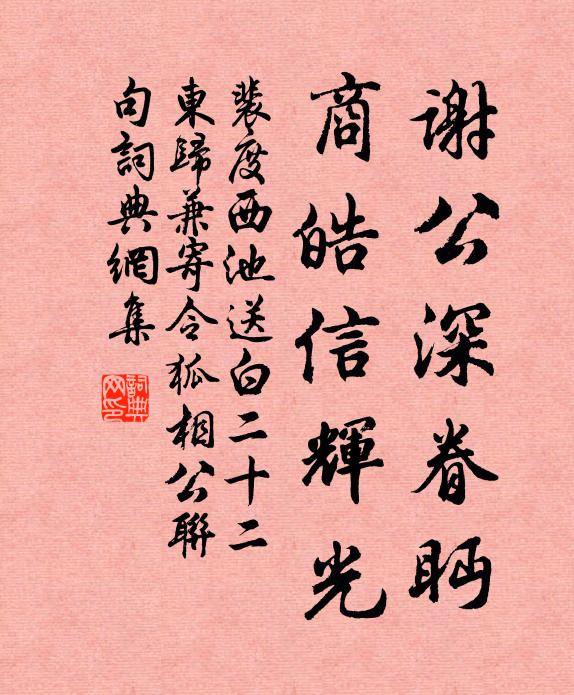 謝公深眷眄
商皓信輝光
裴度西池送白二十二
東歸兼寄令狐相公聯
句詞典網集
詞典網印